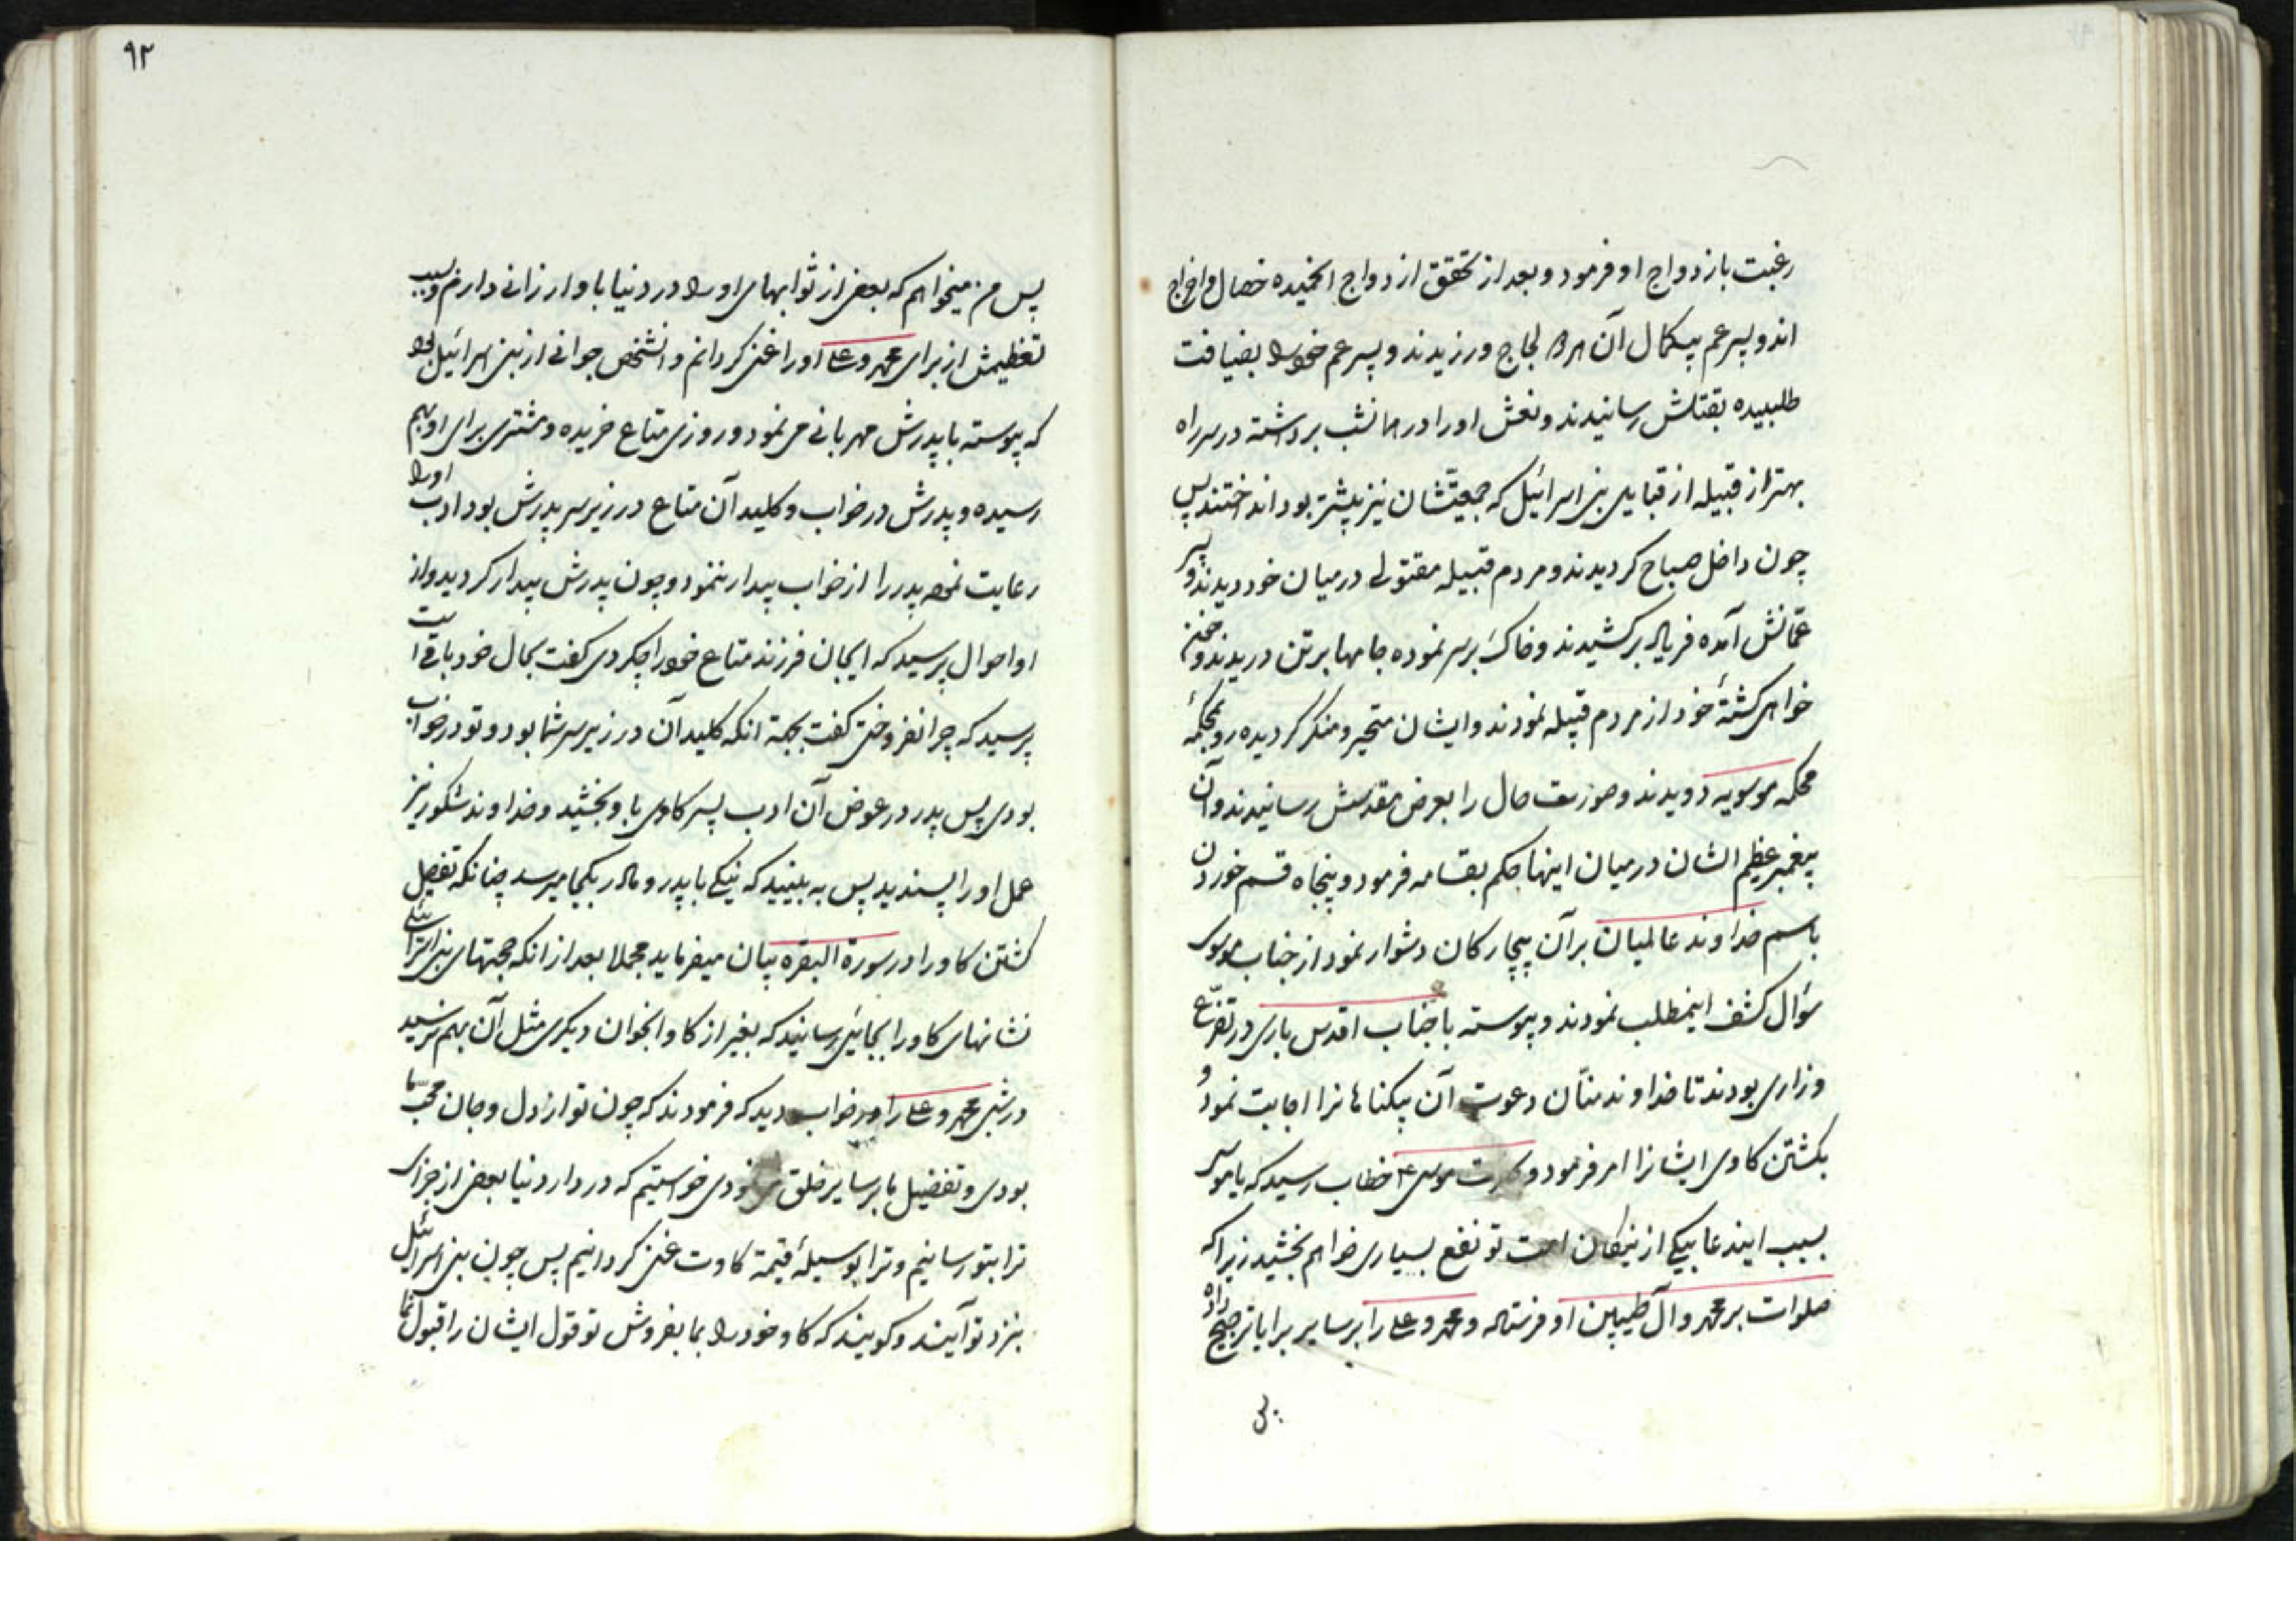 رغبت بازدواج او فرمود و بعد از تحقق ازدواج انحمیده خصال
اندو پسر عم بیکمال آن امر لجاج ورزیدند و پسر عم خود را بضیافت
طلبیده بقتلش رسانیدند و نعش او را در همانشب برداشته در سر راه
بهتر از قبیله از قبایل بنی اسرائیل که جمعیتشان نیز بیشتر بود انداختند پس
چون داخل صباح کردیدند و مردم قبیله مقتولی در میان خود دیدند و پسر
عمانش آمده فریاد برکشیدند و خاک بر سر نموده جامها بر تن دریدند و
خواهی کشتهٔ خود از مردم قبیله نمودند و ایشان متحیر و منکر کردیده رو بمحکمهٔ
محکمه موسویه دویدند و صورت حال را بعرض مقدسش رسانیدند و آن
پیغمبر عظیم الشان در میان اینها حکم بقسامه فرمود و پنجاه قسم خوردن
باسم خداوند عالمیان بر آن بیچارکان دشوار نمود از جناب موسی
سؤال کشف اینمطلب نمودند و پیوسته با جناب اقدس باری در تضرع
و زاری بودند تا خداوند منان دعوت آن بیکناهانرا اجابت نمود و
بکشتن کاوی ایشانرا امر فرمود و موسی ع خطاب رسید که یا موسی
بسبب ایندعا بیکی از نیکان امت تو نفع بسیاری خواهم بخشید زیرا که
صلوات بر محمد و آل طیبین او فرستاده و محمد و علی را بر سایر برایا ترجیح داده
۹۲
پس من میخواهم که بعضی از ثوابهای او را در دنیا باو ارزانی دارم و بسبب
تعظیمش از برای محمد و علی او را غنی کردانم و انشخص جوانی از بنی اسرائیل بود
که پیوسته با پدرش مهربانی می نمود و روزی متاع خریده و مشتری برای او بهم
رسیده و پدرش در خواب و کلید آن متاع در زیر سر پدرش بود ادب او را
رعایت نموده پدر را از خواب بیدار ننمود و چون پدرش بیدار کردید و از
او احوال پرسید که ایجان فرزند متاع خود را چکردی کفت بحال خود باقی است
پرسید که چرا نفروختی کفت بجهة انکه کلید آن در زیر سر شما بود و تو در خواب
بودی پس پدر در عوض آن ادب پسر کاوی باو بخشید و خداوند شکور نیز
عمل او را پسندید پس به بینید که نیکی با پدر و مادر بکجا میرسد چنانکه تفصیل
کشتن کاو را در سورة البقره بیان میفرماید مجملا بعد از انکه حجتهای بنی اسرائیل
نشانهای کاو را بجائی رسانید که بغیر از کاو انجوان دیکری مثل آن بهم نرسید
در شبی محمد و علی را در خواب دید که فرمودند که چون تو از دل و جان محب ما
بودی و تفضیل ما بر سایر خلق می نمودی خواستیم که در دار دنیا بعضی از جزای
ترا بتو رسانیم و ترا بوسیلهٔ قیمة کاوت غنی کردانیم پس چون بنی اسرائیل
بنزد تو آیند و کویند که کاو خود را بما بفروش تو قول ایشان را قبول نما